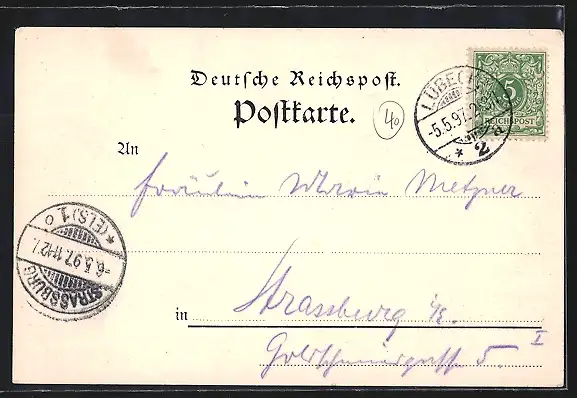 Deutsche Reichspost.
Postkarte.
40
LÜBECK
-5.5.97.
* 2a
5
REICHSPOST
An
Fräulein Maria Metzner
*(ELS.)1 o
-6.5.97.11-12
STRASSBURG
in Strassburg i/E.
Goldschmiedgasse 5. I